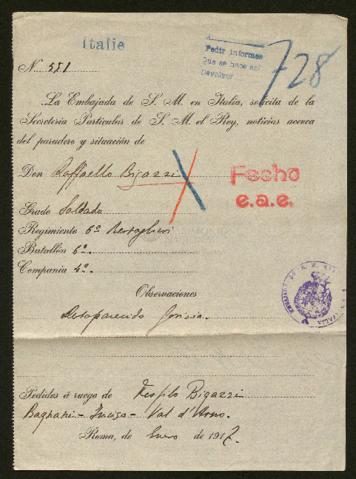 Italie
Pedir informes
que se hace así
Devolver
728
Nº 551
La Embajada de S. M. en Italia, solicita de la
Secretaría Particular de S. M. el Rey, noticias acerca
del paradero y situación de
Don Raffaello Bigazzi
Fecho
e.a.e.
Grado Soldado
Regimiento 6º Bersaglieri
Batallón 6º
Compañía 4ª
Observaciones
Desaparecido Gorizia.
Pedidos á ruego de Bigazzi
Bagnani - Incisa - Val d'Arno.
Roma, de Enero de 1917.